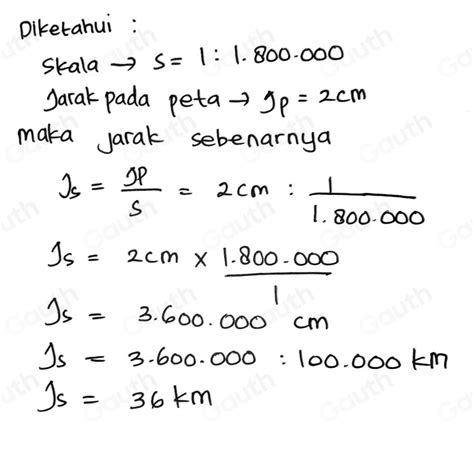 Diketahui :
Skala → S = 1 : 1.800.000
Jarak pada peta → Jp = 2cm
maka jarak sebenarnya
Js = JP/S = 2cm : 1/1.800.000
Js = 2cm x 1.800.000/1
Js = 3.600.000 cm
Js = 3.600.000 : 100.000 km
Js = 36 km